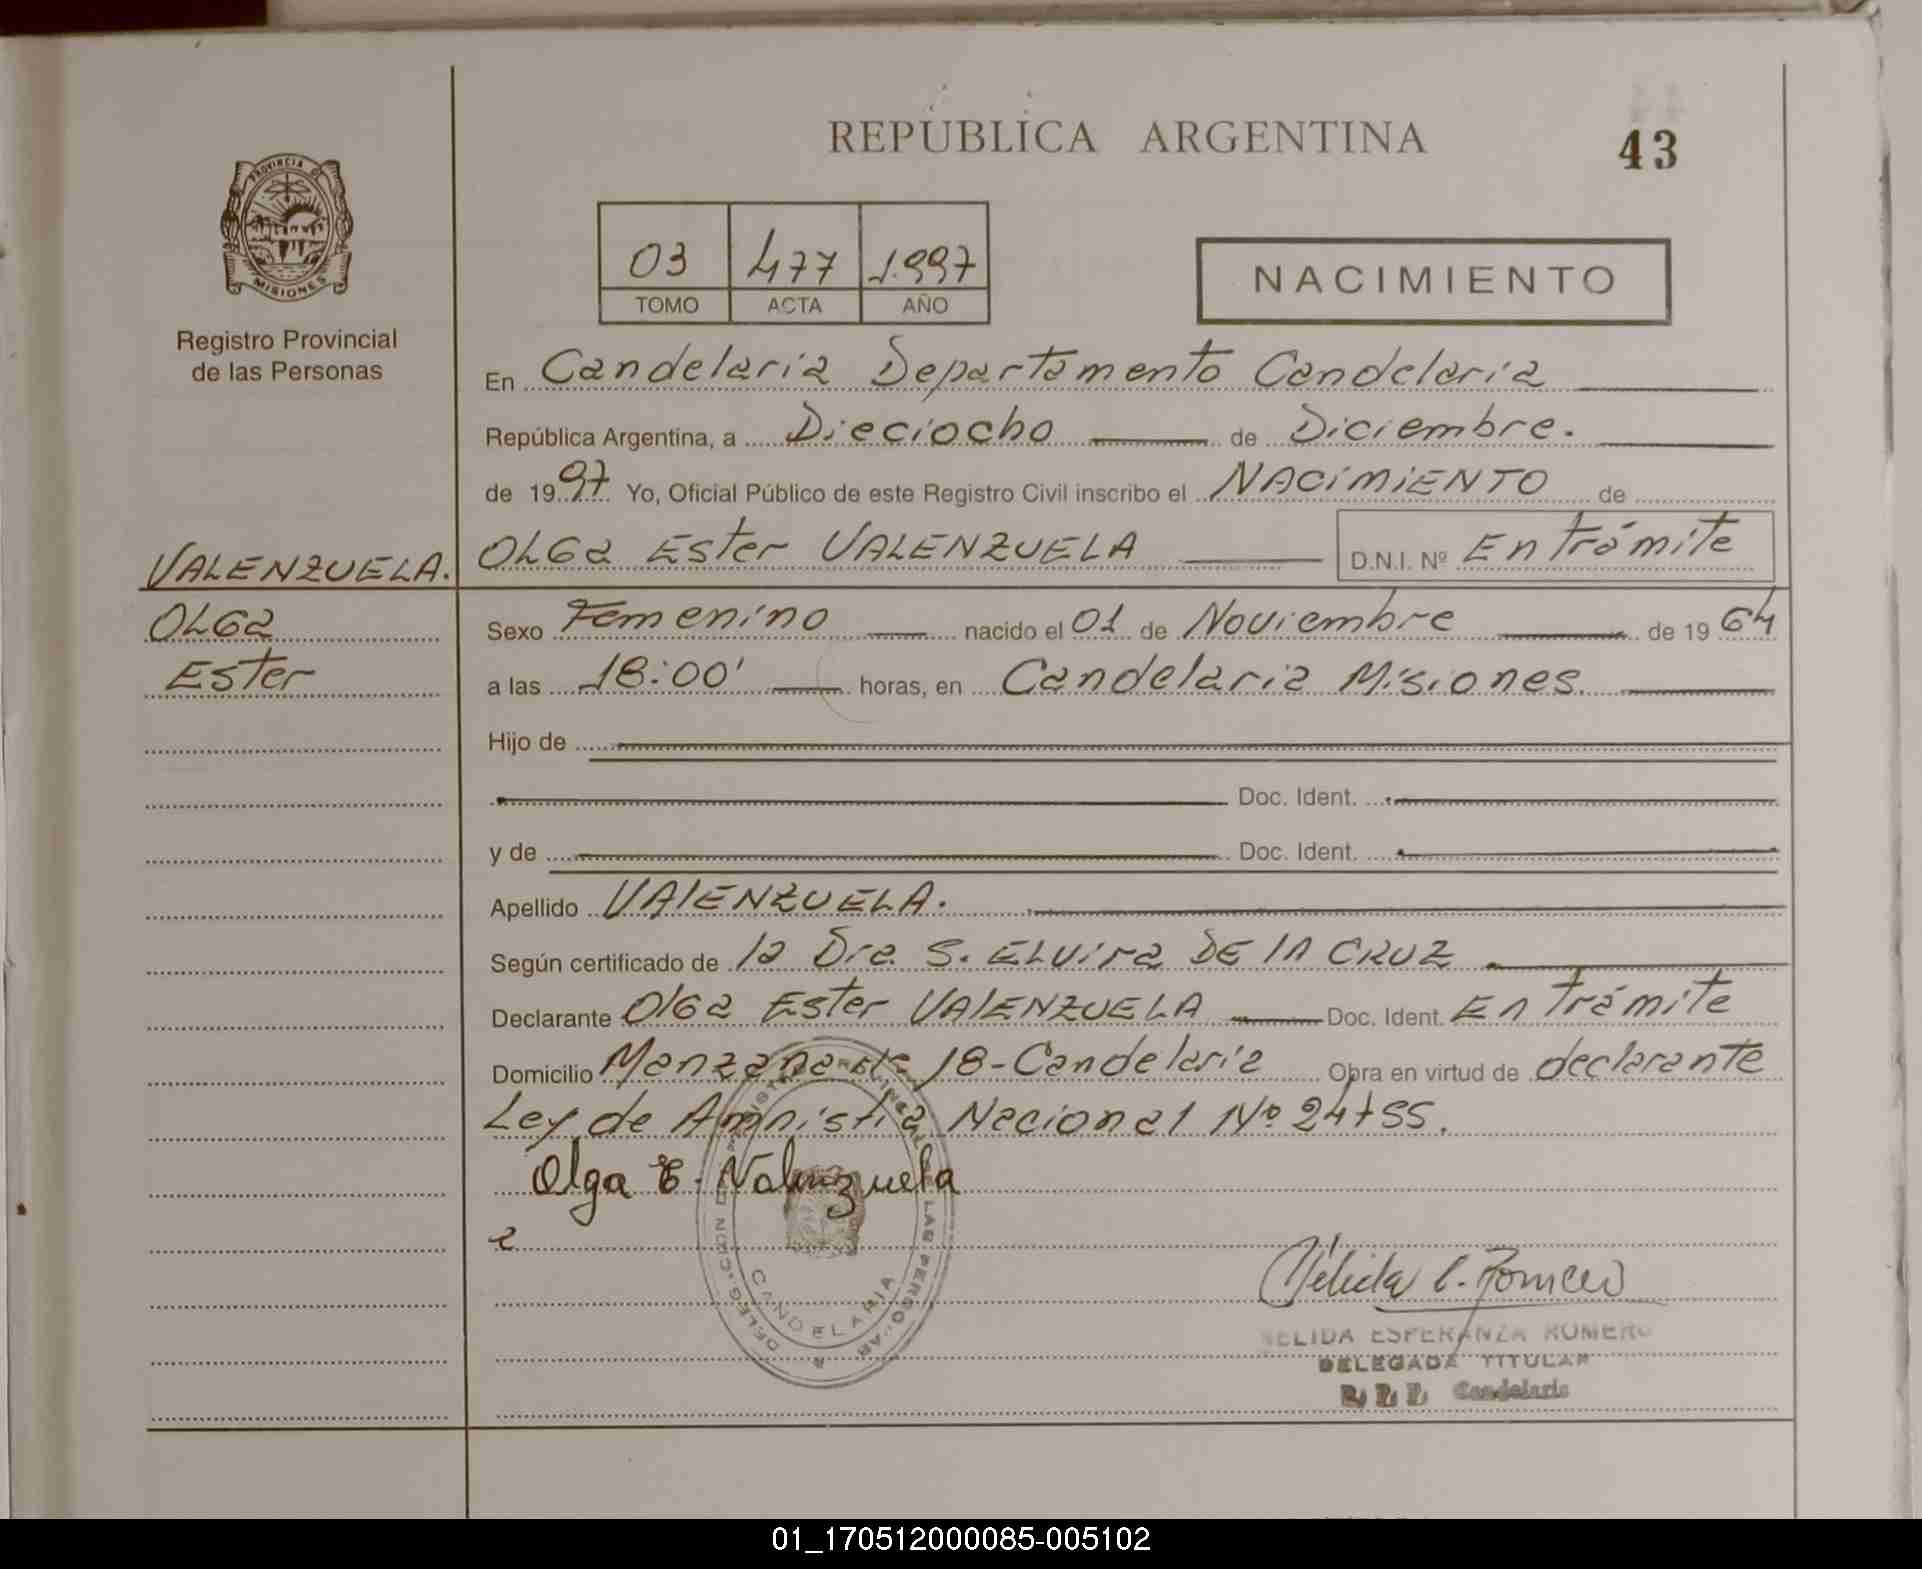 REPÚBLICA ARGENTINA
43
PROVINCIA DE
MISIONES
Registro Provincial
de las Personas
03 477 1.997
TOMO ACTA AÑO
NACIMIENTO
En Candelaria Departamento Candelaria
República Argentina, a Dieciocho de Diciembre.
de 1997 Yo, Oficial Público de este Registro Civil inscribo el NACIMIENTO de
VALENZUELA. OLGa Ester VALENZUELA D.N.I. Nº En Trámite
OLGa Sexo Femenino nacido el 01 de Noviembre de 1964
Ester a las 18:00' horas, en Candelaria Misiones
Hijo de
Doc. Ident.
y de Doc. Ident.
Apellido VALENZUELA.
Según certificado de la Dra. S. ELVira DE LA CRUZ
Declarante Olga Ester VALENZUELA Doc. Ident. En Trámite
Domicilio Manzana 18-Candelaria Obra en virtud de declarante
Ley de Amnistia Nacional Nº 24755.
Olga E. Valenzuela
CANDELARIA
Nélida E. Romero
NELIDA ESPERANZA ROMERO
DELEGADA TITULAR
Candelaria
01_170512000085-005102